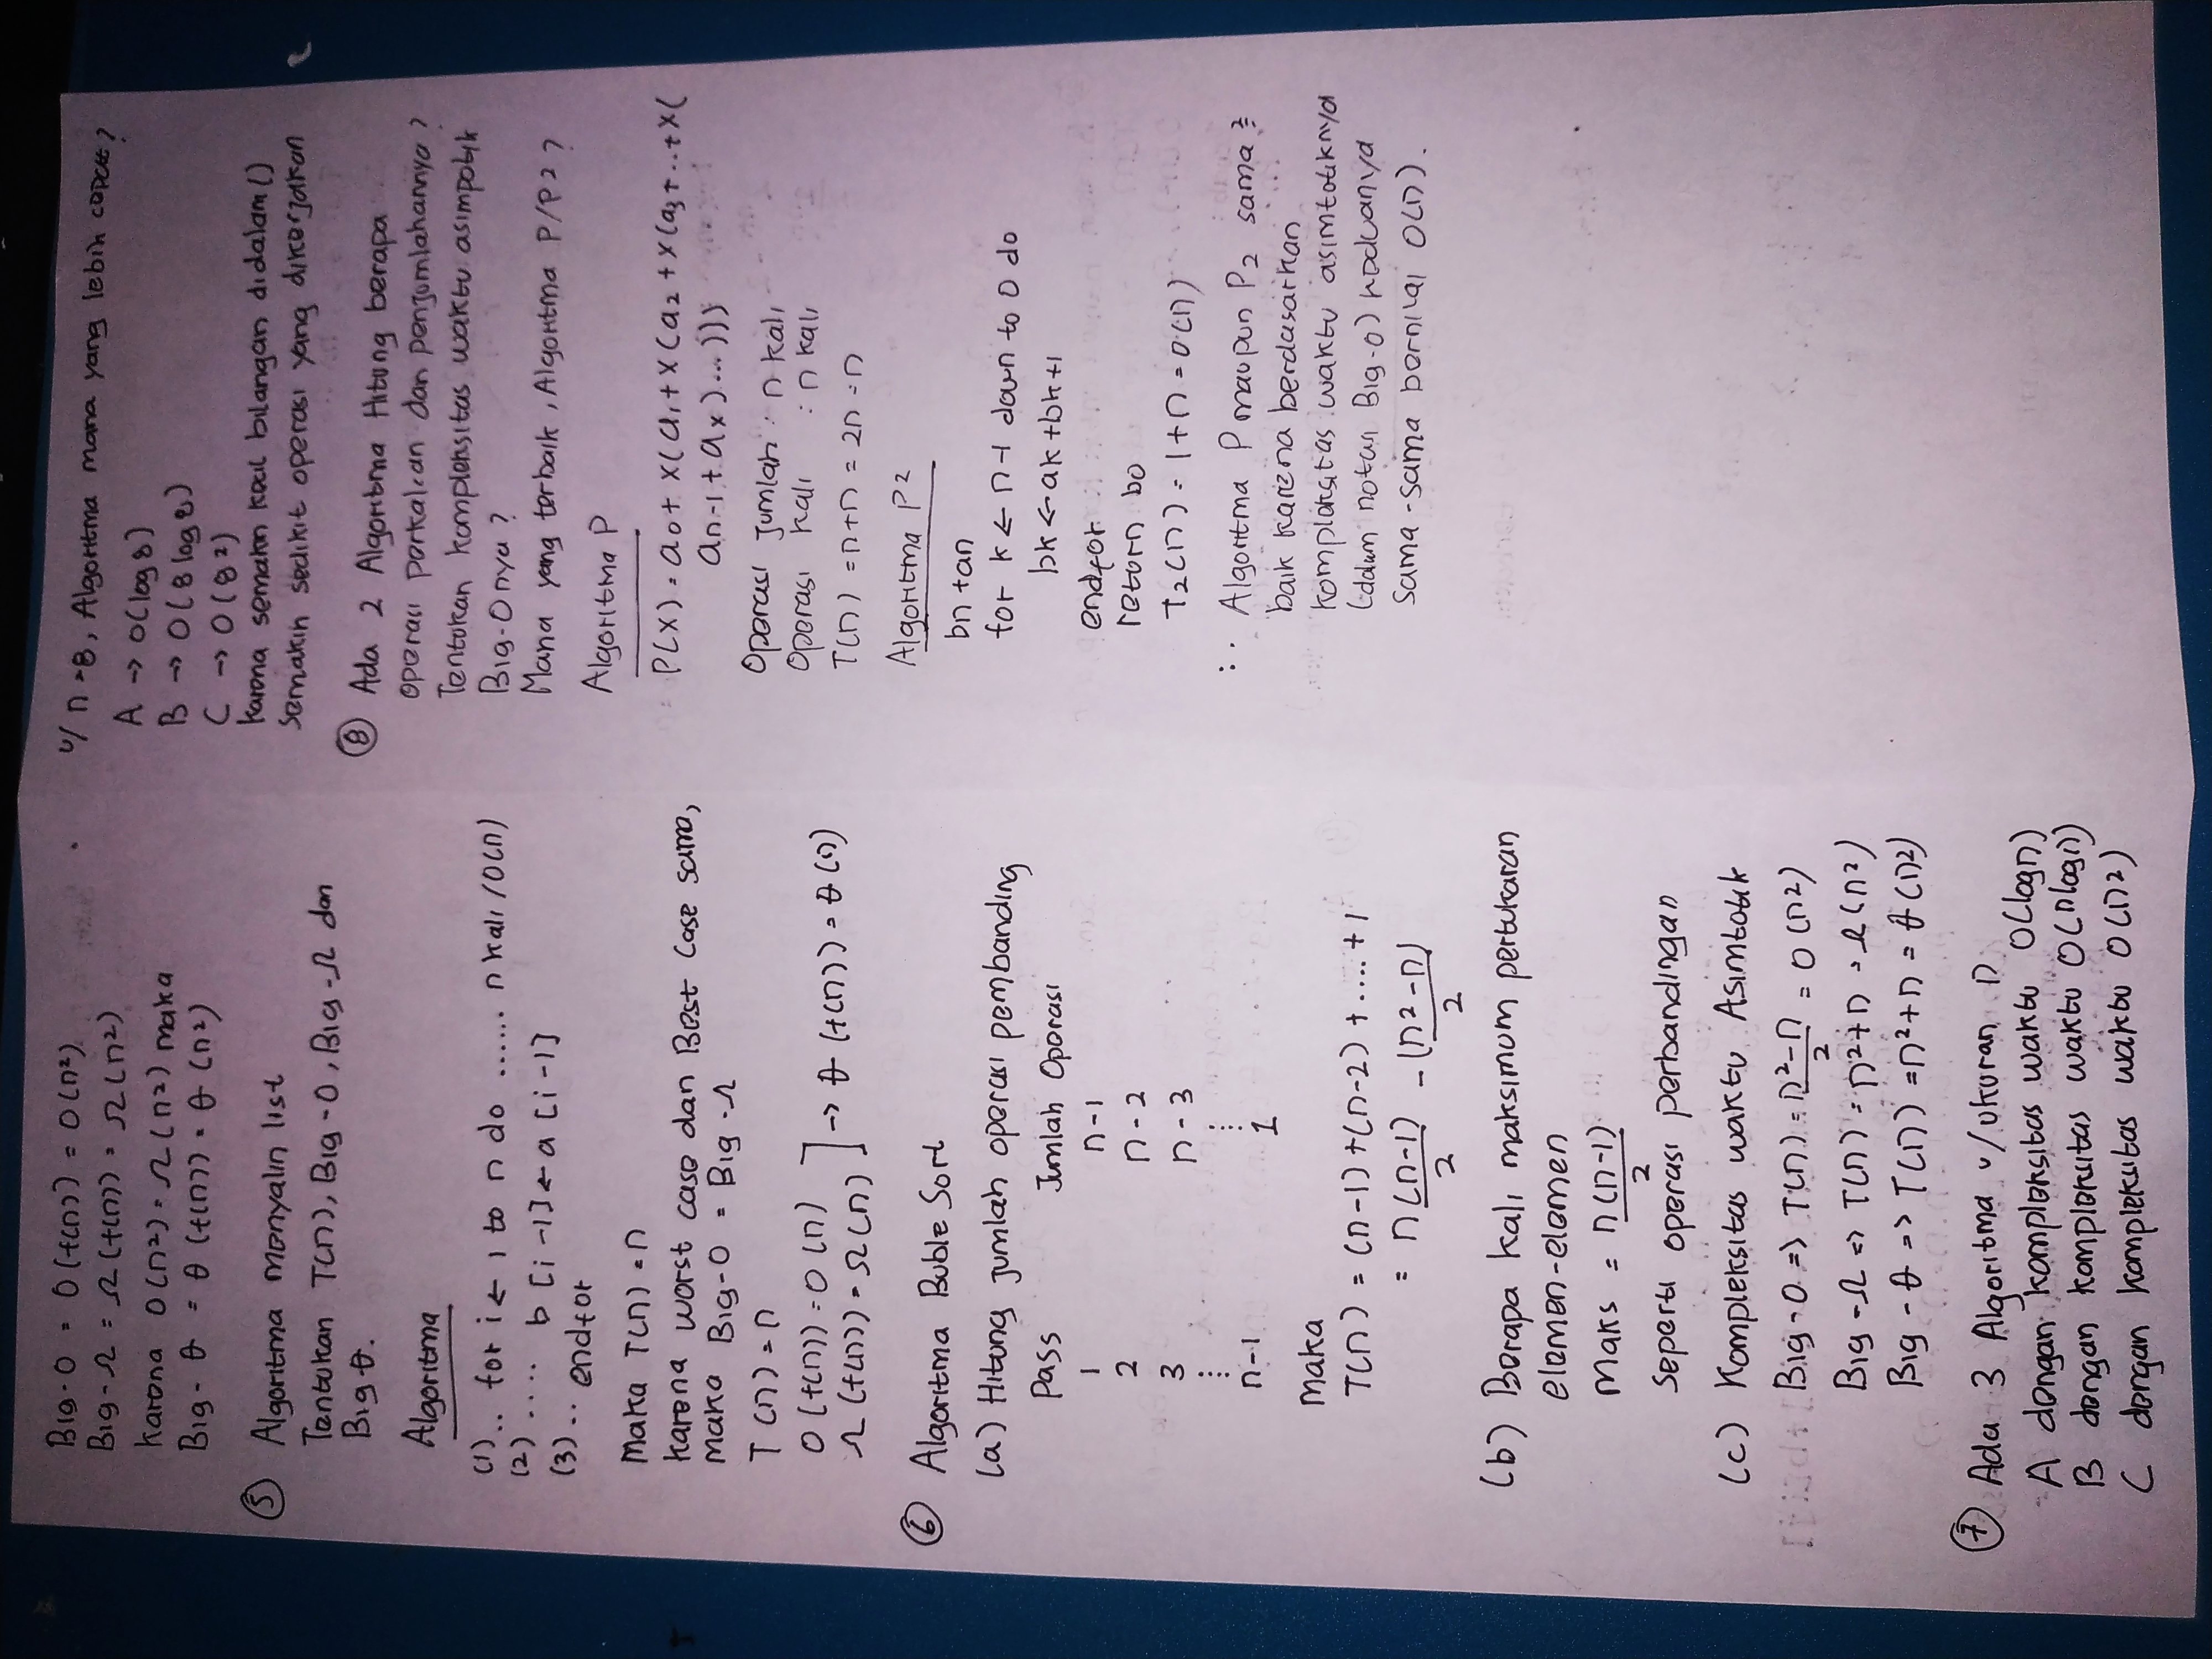 Big-O = O(f(n)) = O(n²)
Big-Ω = Ω(f(n)) = Ω(n²)
karena O(n²) = Ω(n²) maka
Big-θ = θ(f(n)) = θ(n²)
⑤ Algoritma menyalin list
Tentukan T(n), Big-O, Big-Ω dan
Big θ.
Algoritma
(1).. for i ← 1 to n do ...... n kali / O(n)
(2) .... b [i-1] ← a [i-1]
(3).. endfor
Maka T(n) = n
karena worst case dan Best Case sama,
maka Big-O = Big-Ω
T(n) = n
O(f(n)) = O(n)
Ω(f(n)) = Ω(n) ] → θ(f(n)) = θ(n)
⑥ Algoritma Buble Sort
(a) Hitung jumlah operasi pembanding
Pass Jumlah Operasi
1 n-1
2 n-2
3 n-3
⋮ ⋮
n-1 1
Maka
T(n) = (n-1)+(n-2)+....+1
= n(n-1)/2 - (n²-n)/2
(b) Berapa kali maksimum pertukaran
elemen-elemen
Maks = n(n-1)/2
seperti operasi perbandingan
(c) Kompleksitas waktu Asimtotik
Big-O => T(n) = n²-n/2 = O(n²)
Big-Ω => T(n) = n²+n = Ω(n²)
Big-θ => T(n) = n²+n = θ(n²)
⑦ Ada 3 Algoritma u/ ukuran n
A dengan kompleksitas waktu O(log n)
B dengan kompleksitas waktu O(n log n)
C dengan kompleksitas waktu O(n²)
u/ n=8, Algoritma mana yang lebih cepat?
A → O(log 8)
B → O(8 log 8)
C → O(8²)
karena semakin kecil bilangan didalam ()
semakin sedikit operasi yang dikerjakan
⑧ Ada 2 Algoritma Hitung berapa
operasi perkalian dan penjumlahannya?
Tentukan kompleksitas waktu asimpotik
Big-O nya?
Mana yang terbaik, Algoritma P/P2?
Algoritma P
P(x) = a₀ + x(a₁ + x(a₂ + x(a₃ + ... + x(
aₙ₋₁ + aₓ)...)))
Operasi jumlah : n kali
Operasi kali : n kali
T(n) = n+n = 2n = n
Algoritma P2
bn + an
for k ← n-1 down to 0 do
bk ← ak + bk+1
endfor
return b0
T₂(n) = 1+n = O(n)
∴ Algoritma P maupun P₂ sama²
baik karena berdasarkan
kompleksitas waktu asimtotiknya
(dalam notasi Big-O) keduanya
sama-sama bernilai O(n).